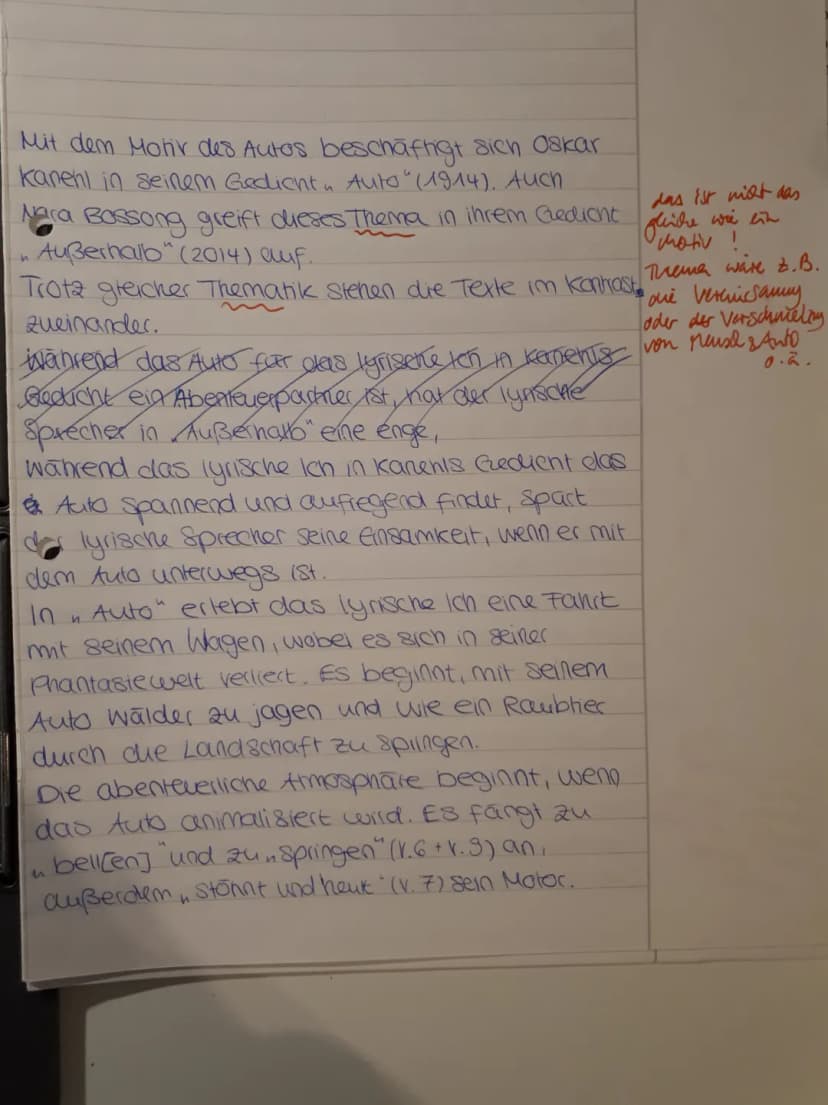 Mit dem Motiv des Autos beschäftigt sich Oskar
Kanehl in seinem Gedicht „Auto“ (1914). Auch
Nora Bossong greift dieses Thema in ihrem Gedicht
„Außerhalb“ (2014) auf.
Trotz gleicher Thematik stehen die Texte im Kontrast
zueinander.
Während das Auto für das lyrische Ich in Kanehls
Gedicht ein Abenteuerpartner ist, hat der lyrische
Sprecher in „Außerhalb“ eine enge,
Während das lyrische Ich in Kanehls Gedicht das
Auto spannend und aufregend findet, spürt
der lyrische Sprecher seine Einsamkeit, wenn er mit
dem Auto unterwegs ist.
In „Auto“ erlebt das lyrische Ich eine Fahrt
mit seinem Wagen, wobei es sich in seiner
Phantasiewelt verliert. Es beginnt, mit seinem
Auto Wälder zu jagen und wie ein Raubtier
durch die Landschaft zu springen.
Die abenteuerliche Atmosphäre beginnt, wenn
das Auto animalisiert wird. Es fängt zu
„bell[en]“ und zu „springen“ (V.6 + V.9) an,
außerdem „stöhnt und heult“ (V.7) sein Motor.
das ist nicht das
gleiche wie ein
Motiv !
Thema wäre z.B.
die Vereinsamung
oder der Verschmelzung
von Mensch & Auto
o.ä.